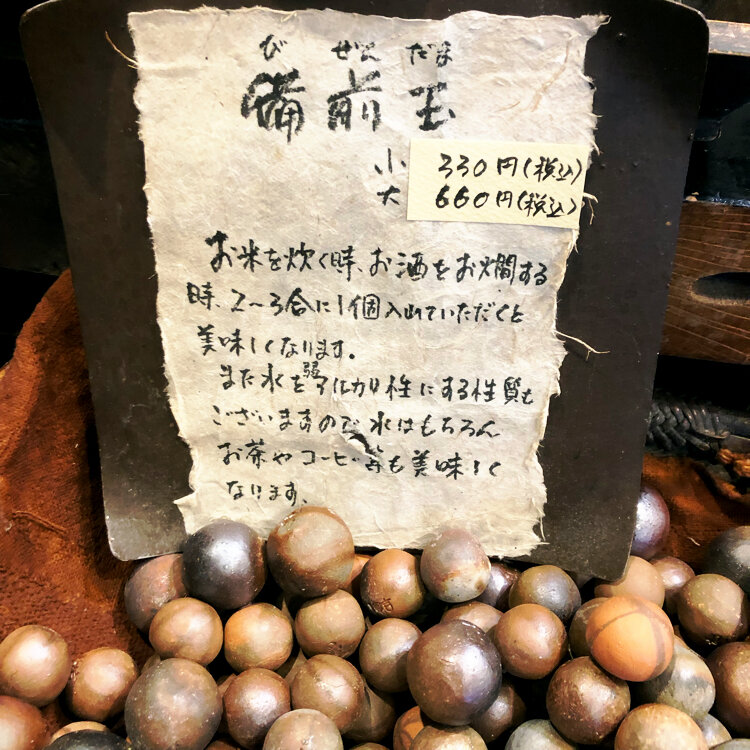 びぜんだま
備前玉
小 330円(税込)
大 660円(税込)
お米を炊く時、お酒をお燗する
時、2～3合に1個入れていただくと
美味しくなります。
また水を弱アルカリ性にする性質も
ございますので水はもちろん
お茶やコーヒー等も美味しく
なります。